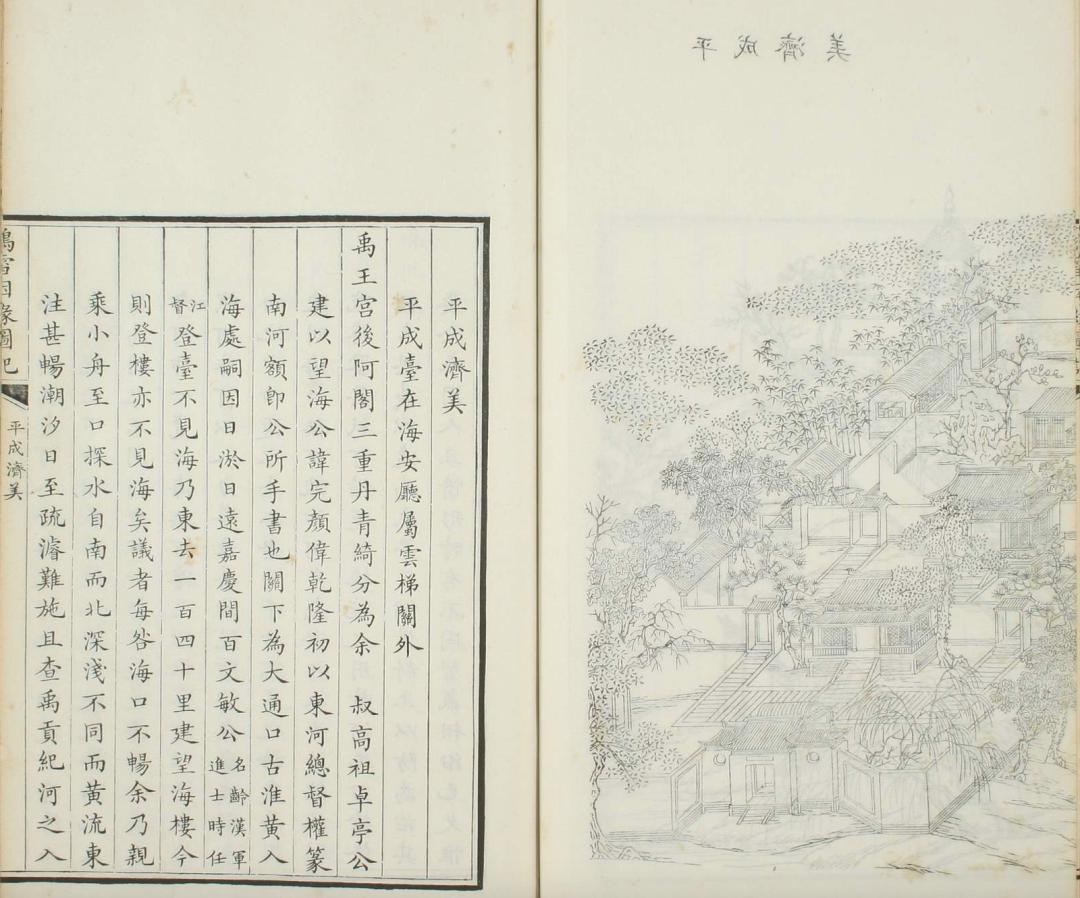 平成濟美
平成濟美
平成臺在海安廳屬雲梯關外
禹王宮後阿閣三重丹青綺分為余 叔高祖卓亭公
建以望海公諱完顏偉乾隆初以東河總督權篆
南河額即公所手書也關下為大通口古淮黃入
海處嗣因日淤日遠嘉慶間百文敏公名齡漢軍進士時任
江督登臺不見海乃東去一百四十里建望海樓今
則登樓亦不見海矣議者每咎海口不暢余乃親
乘小舟至口探水自南而北深淺不同而黃流東
注甚暢潮汐日至疏濬難施且查禹貢紀河之入
鴻雪因緣圖記
平成濟美